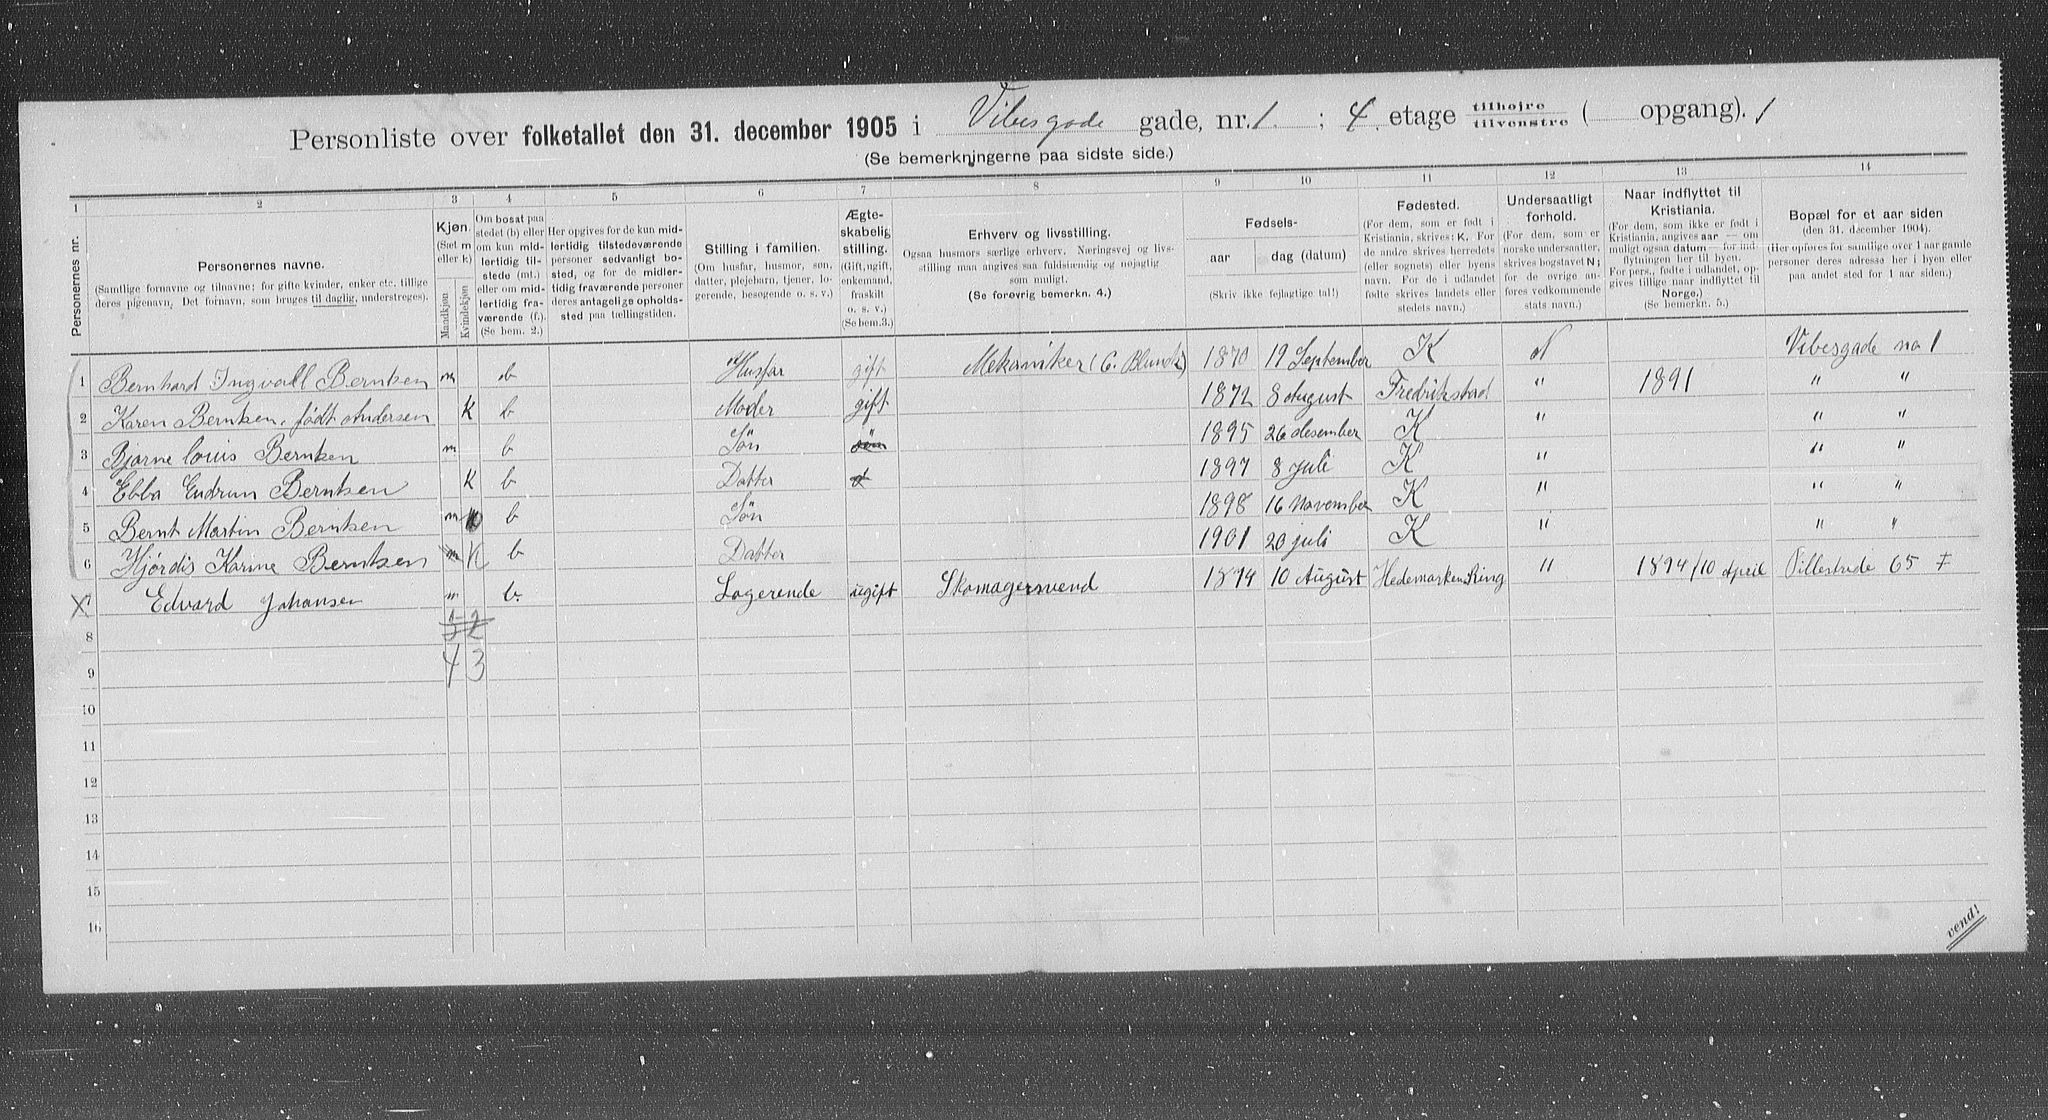 Personliste over folketallet den 31. december 1905 i Vibesgade gade, nr. 1. ; 4. etage tilhøjre / tilvenstre ( opgang). 1
(Se bemerkningerne paa sidste side.)
1 2 3 4 5 6 7 8 9 10 11 12 13 14
Personernes nr.
Personernes navne.
(Samtlige fornavne og tilnavne; for gifte kvinder, enker etc. tillige
deres pigenavn. Det fornavn, som bruges til daglig, understreges).
Kjøn.
(Sæt m
eller k)
Mandkjøn
Kvindekjøn
Om bosat paa
stedet (b) eller
om kun mid-
lertidig til-
stede (mt.)
eller om mid-
lertidig fra-
værende (f.).
(Se bem. 2.)
Her opgives for de kun mid-
lertidig tilstedeværende
personer sedvanligt bo-
sted, og for de midler-
tidig fraværende personer
deres antagelige opholds-
sted paa tællingstiden.
Stilling i familien.
(Om husfar, husmor, søn,
datter, plejebarn, tjener, lo-
gerende, besøgende o. s. v.)
Ægte-
skabelig
stilling.
(Gift, ugift,
enkemand,
fraskilt
o. s. v.)
(Se bem.3.)
Erhverv og livsstilling.
Ogsaa husmors særlige erhverv. Næringsvej og livs-
stilling maa angives saa fuldstændig og nøjagtig
som muligt.
(Se forøvrig bemerkn. 4.)
Fødsels-
aar dag (datum)
(Skriv ikke fejlagtige tal!)
Fødested.
(For dem, som er født i
Kristiania, skrives: K. For
de andre skrives herredets
(eller sognets) eller byens
navn. For de i udlandet
fødte skrives landets eller
stedets navn.)
Undersaatligt
forhold.
(For dem, som er
norske undersaatter,
skrives bogstavet N;
for de øvrige an-
føres vedkommende
stats navn.)
Naar indflyttet til
Kristiania.
(For dem, som ikke er født i
Kristiania, angives aar — om
muligt ogsaa datum — for ind-
flytningen her til byen.
For pers., fødte i udlandet, op-
gives tillige naar indflyttet til
Norge.)
(Se bemerkn. 5.)
Bopæl for et aar siden
(den 31. december 1904).
(Her opføres for samtlige over 1 aar gamle
personer deres adresse her i byen eller
paa andet sted for 1 aar siden.)
1 Bernhard Ingvall Berntsen m b Husfar gift Mekaniker 1870 19 September K N Vibesgade no 1
2 Karen Berntsen, født Andersen K b Moder gift 1872 8 August Fredrikstad " 1891 " "
3 Bjarne Louis Berntsen m b Søn " 1895 26 desember K " " "
4 Ebba Gudrun Berntsen K b Datter 1897 8 juli K " " "
5 Bernt Martin Berntsen m b Søn 1898 16 November K " " "
6 Hjørdis Karine Berntsen K b Datter 1901 20 juli K " " "
X 7 Edvard Johansen m b. Logerende ugift Skomagersvend 1874 10 August Hedemarken Ring " 1894/10 April Pillestrede 65
8
4 3
9
10
11
12
13
14
15
16
vend!